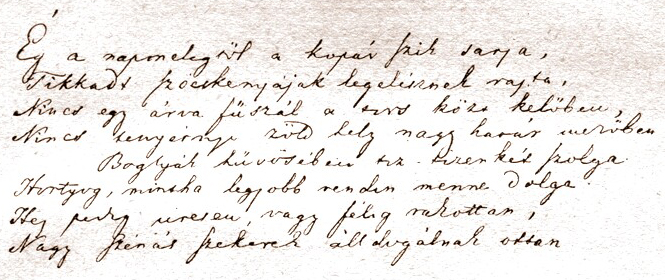 Ég a napmelegtől a kopár szik sarja,
Tikkadt szöcskenyájak legelésznek rajta,
Nincs egy árva fűszál a tors közt kelőben,
Nincs tenyérnyi zöld hely nagy határ mezőben
Boglyák hüvösében tiz-tizenkét szolga
Hortyog, mintha legjobb rendin menne dolga
Hej pedig üresen, vagy félig rakottan,
Nagy szénás szekerek álldogálnak ottan